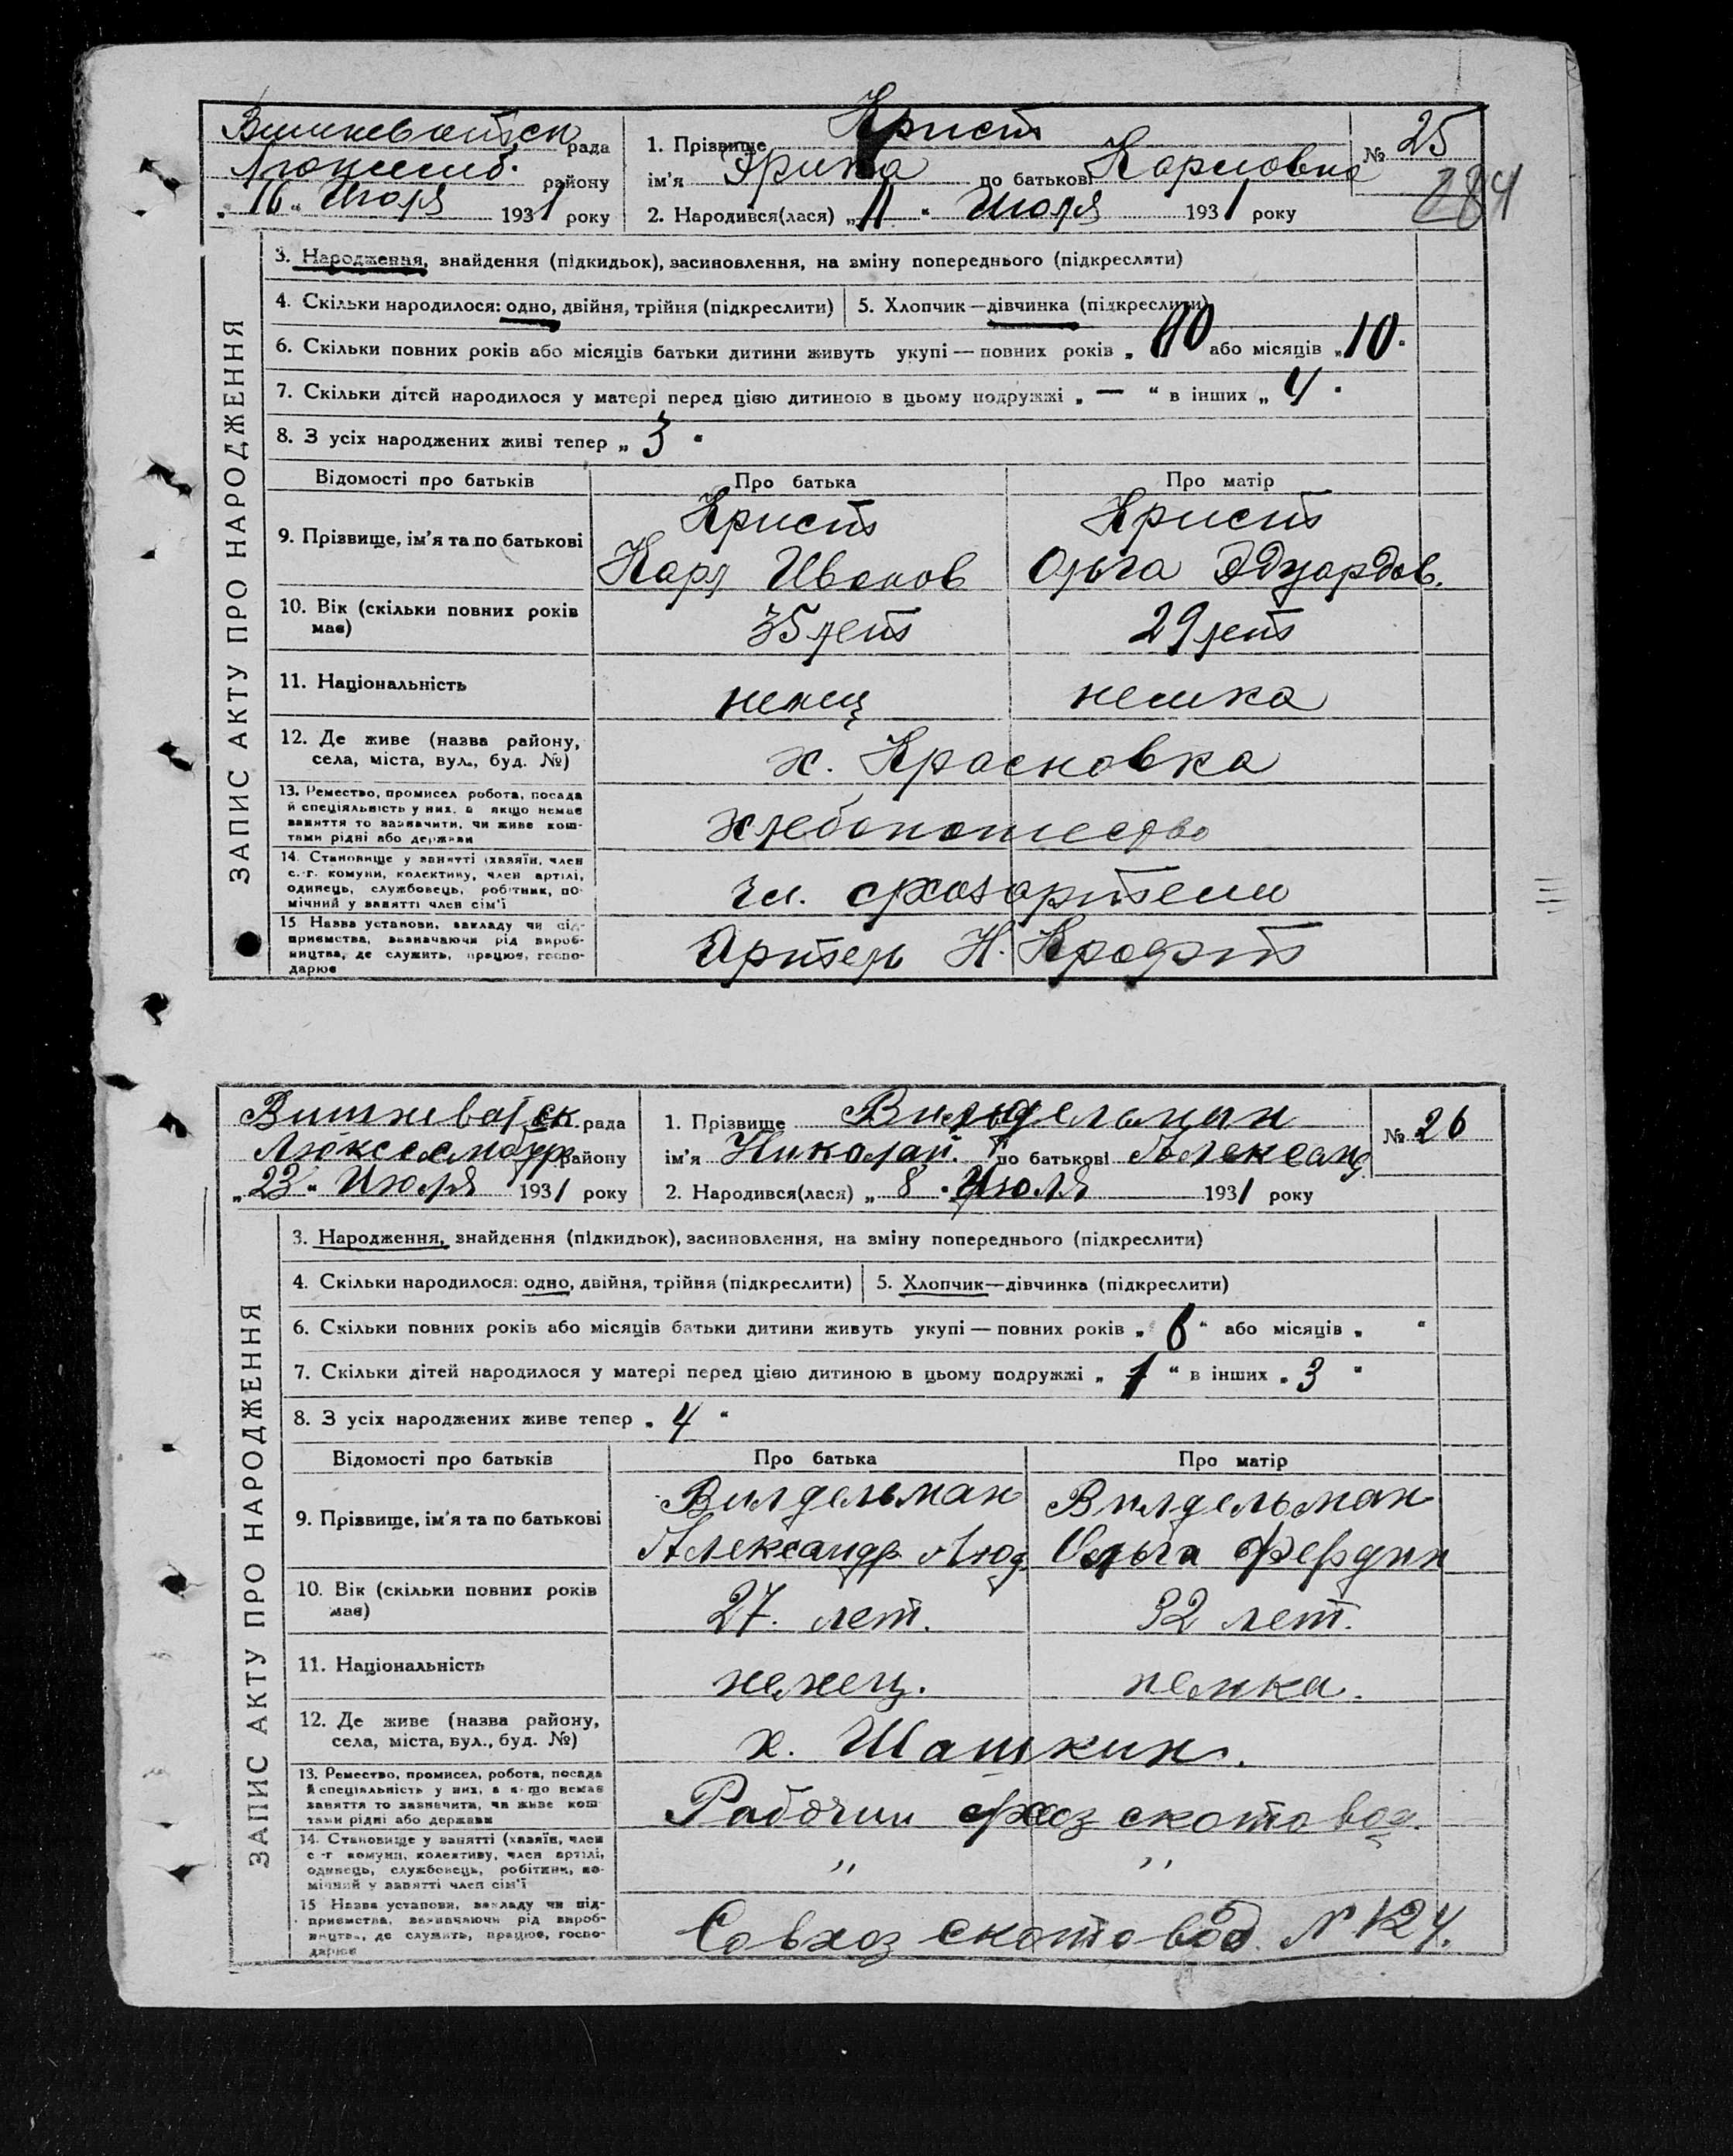 Вишневатск рада
Люксемб. району
„16“ Июля 1931 року
1. Прізвище Крист
ім'я Эрика по батькові Карловна
2. Народився(лася) „11“ Июля 1931 року
№ 25
284
ЗАПИС АКТУ ПРО НАРОДЖЕННЯ
3. Народження, знайдення (підкидьок), засиновлення, на зміну попереднього (підкреслити)
4. Скільки народилося: одно, двійня, трійня (підкреслити) 5. Хлопчик—дівчинка (підкреслити)
6. Скільки повних років або місяців батьки дитини живуть укупі — повних років „ або місяців „10“
7. Скільки дітей народилося у матері перед цією дитиною в цьому подружжі „—“ в інших „4“
8. З усіх народжених живі тепер „3“
Відомості про батьків Про батька Про матір
9. Прізвище, ім'я та по батькові
Крист Крист
Карл Иванов Ольга Эдуардов.
10. Вік (скільки повних років має) 35 лет 29 лет
11. Національність немец немка
12. Де живе (назва району, села, міста, вул., буд. №) х. Красновка
13. Ремество, промисел робота, посада
й спеціяльність у них, а якщо немає
заняття то зазначити, чи живе кош-
тами рідні або держави
хлебопашество
14. Становище у занятті (хазяїн, член
с.-г. комуни, колективу, член артілі,
одинець, службовець, робітник, по-
мічний у занятті член сім'ї
чл. схозартели
15 Назва установи, закладу чи під-
приємства, визначаючи рід вироб-
ництва, де служить, працює, госпо-
дарює
Артель Н. Крафт
Вишневатск. рада
Люксембур району
„23“ Июля 1931 року
1. Прізвище Вильдельман
ім'я Николай. по батькові Александ.
2. Народився(лася) „8“ Июля 1931 року
№ 26
ЗАПИС АКТУ ПРО НАРОДЖЕННЯ
3. Народження, знайдення (підкидьок), засиновлення, на зміну попереднього (підкреслити)
4. Скільки народилося: одно, двійня, трійня (підкреслити) 5. Хлопчик—дівчинка (підкреслити)
6. Скільки повних років або місяців батьки дитини живуть укупі — повних років „6“ або місяців „ “
7. Скільки дітей народилося у матері перед цією дитиною в цьому подружжі „1“ в інших „3“
8. З усіх народжених живе тепер „4“
Відомості про батьків Про батька Про матір
9. Прізвище, ім'я та по батькові
Вилдельман Вилдельман
Александр Люд. Ольга Фердин
10. Вік (скільки повних років має) 27. лет. 32 лет.
11. Національність немец. немка.
12. Де живе (назва району, села, міста, вул., буд. №) х. Шашкин.
13. Ремество, промисел, робота, посада
й спеціяльність у них, а якщо немає
заняття то зазначити, чи живе кош-
тами рідні або держави
Рабочии схоз скотовод.
14. Становище у занятті (хазяїн, член
с-г комуни, колективу, член артілі,
одинець, службовець, робітник, по-
мічний у занятті член сім'ї
" "
15 Назва установи, закладу чи під-
приємства, визначаючи рід вироб-
ництва, де служить, працює, госпо-
дарює
Совхоз скотовод. № 124.